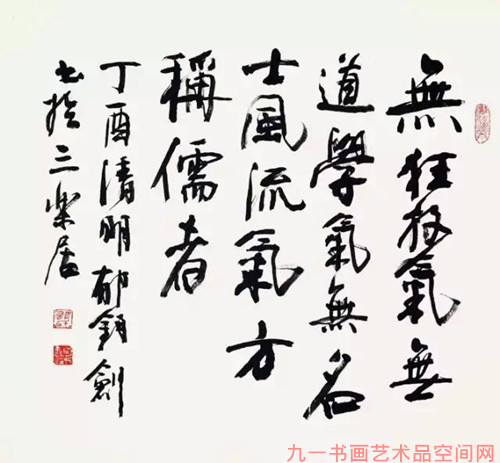 無狂放氣無
道學氣無名
士風流氣方
稱儒者
丁酉清明郁钧劍
书於三樂居
九一书画艺术品空间网